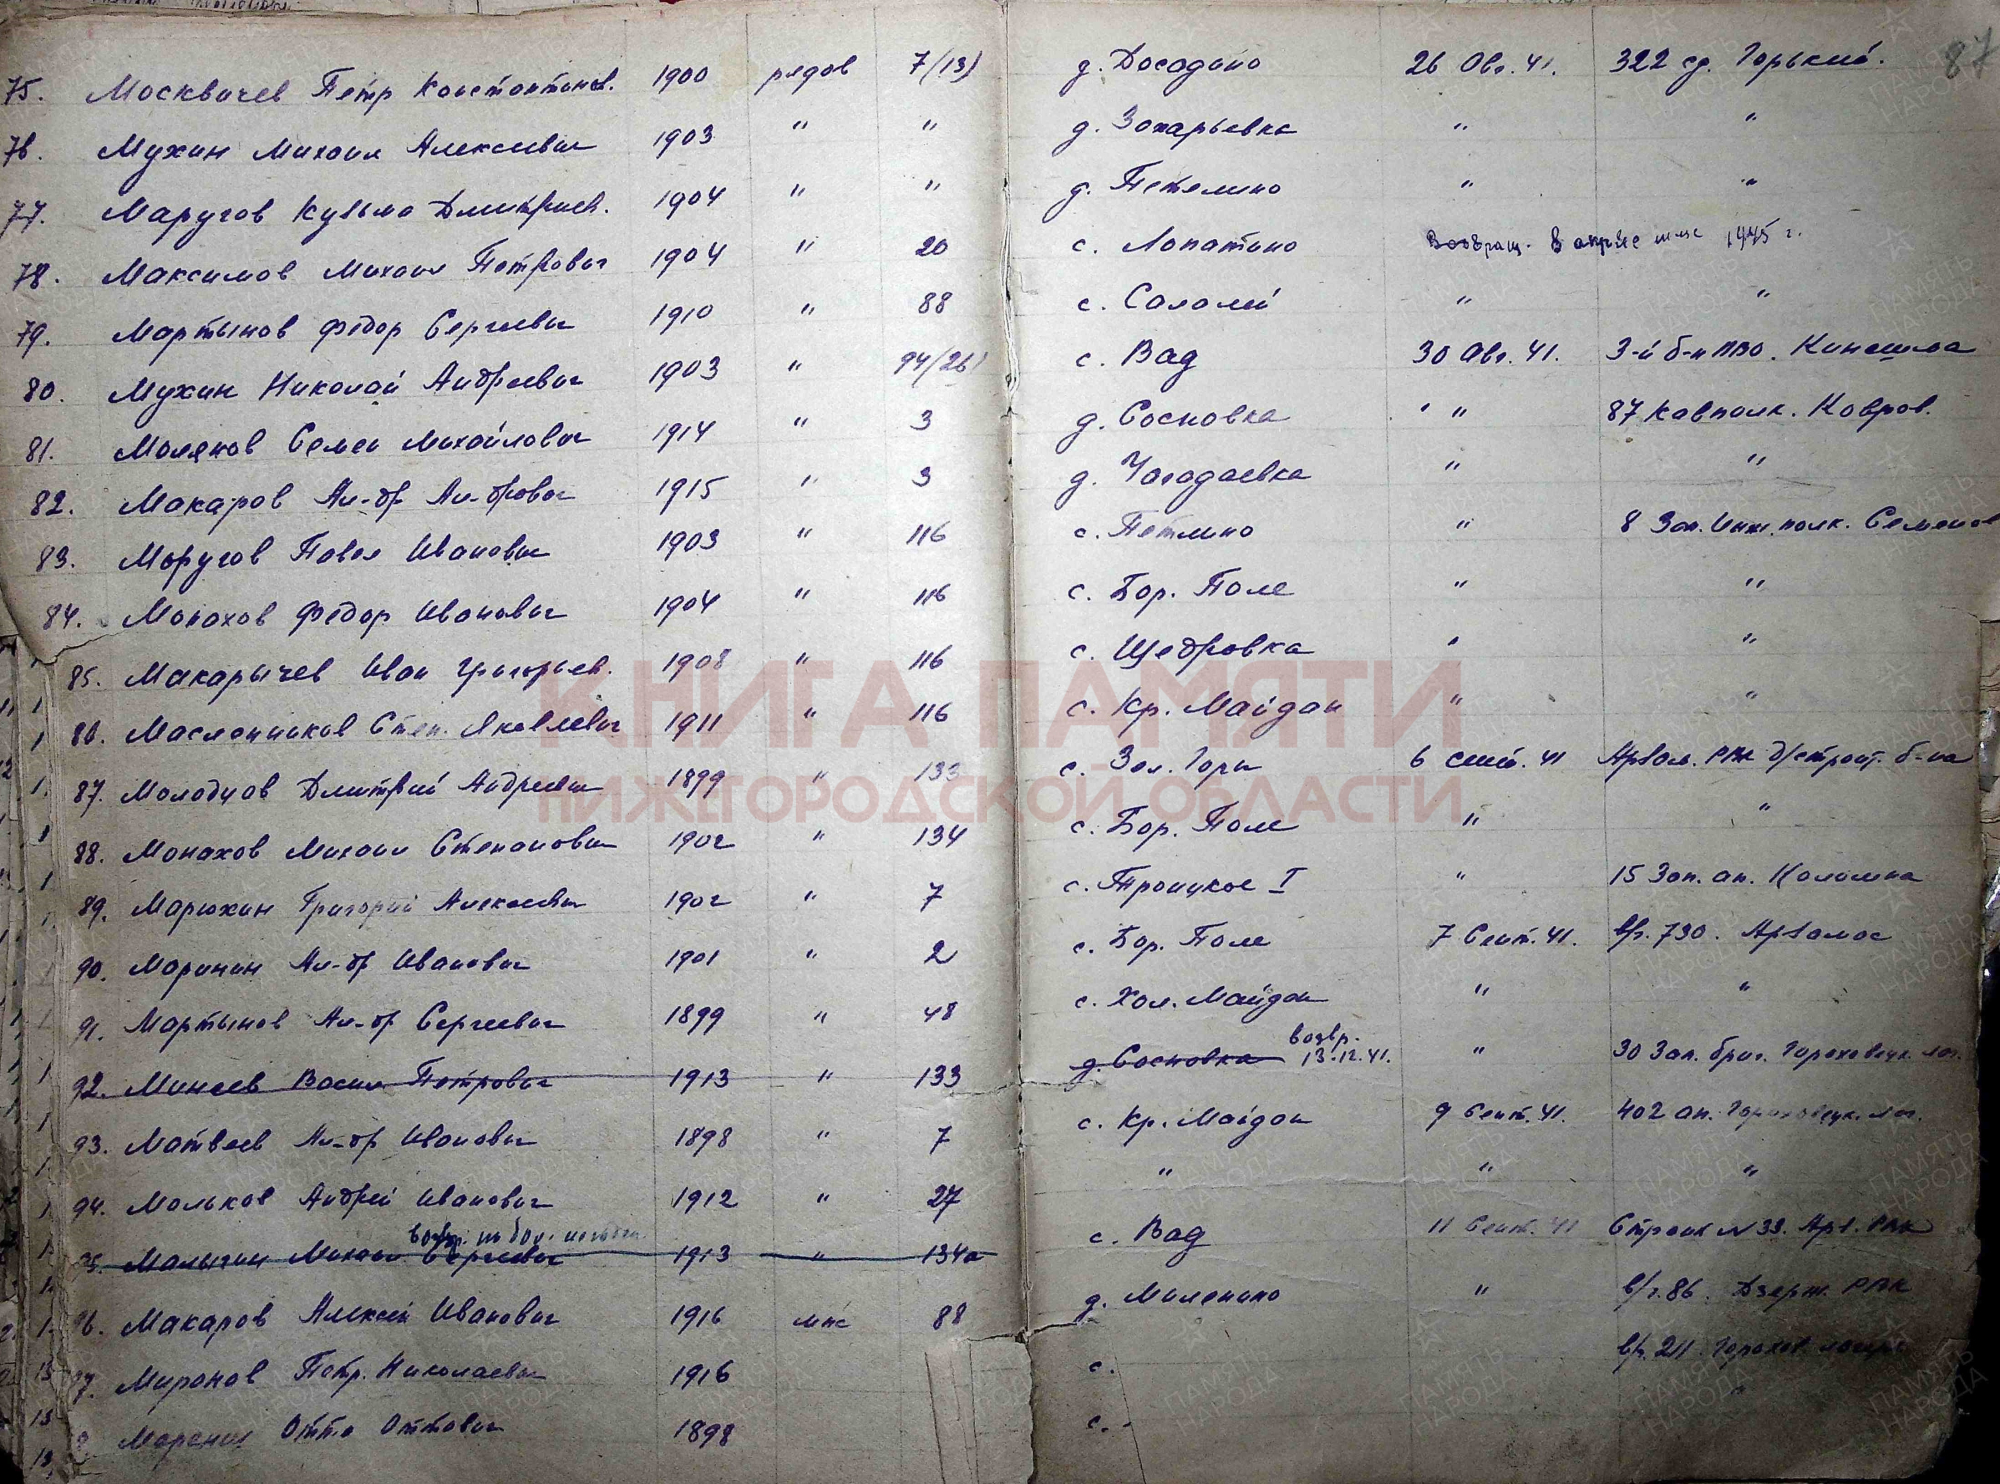 87
75. Москвичев Петр Константинов. 1900 рядов 7/13) д. Досадино 26 Авг. 41. 322 сд. Горький.
76. Мухин Михаил Алексеевич 1903 " " д. Захарьевка " "
77. Маругов Кузьма Дмитриев. 1904 " " д. Петлино " "
78. Максимов Михаил Петрович 1904 " 20 с. Лопатино Возвращ. в апреле м-це 1945 г.
79. Мартынов Федор Сергеевич 1910 " 88 с. Салалей " "
80. Мухин Николай Андреевич 1903 " 94/26) с. Вад 30 Авг. 41. 3-й б-н ПВО. Кинешма
81. Моляков Семен Михайлович 1914 " 3 д. Сосновка " 87 Кавполк. Ковров.
82. Макаров Ал-др Ал-дрович 1915 " 3 д. Чагадаевка " "
83. Маругов Павел Иванович 1903 " 116 с. Петлино " 8 Зап. Инж. полк. Семенов
84. Монахов Федор Иванович 1904 " 116 с. Бор. Поле " "
85. Макарычев Иван Григорьев. 1908 " 116 с. Щедровка " "
86. Масленников Степ. Яковлевич 1911 " 116 с. Кр. Майдан " "
87. Молодцов Дмитрий Андреевич 1899 " 133 с. Зел. Горы 6 сент. 41 Арзам. РВК д/строит. б-на
88. Монахов Михаил Степанович 1902 " 134 с. Бор. Поле " "
89. Марюхин Григорий Алексеевич 1902 " 7 с. Троицкое I " 15 Зап. ап. Коломна
90. Маринин Ал-др Иванович 1901 " 2 с. Бор. Поле 7 Сент. 41. в/ч. 730. Арзамас
91. Мартынов Ал-др Сергеевич 1899 " 48 с. Хол. Майдан " "
возвр.
92. Минеев Васил Петрович 1913 " 133 д. Сосновка 13-12.41. " 30 Зап. бриг. Гороховецк. лаг.
93. Матвеев Ал-др Иванович 1898 " 7 с. Кр. Майдан 9 Сент. 41. 402 ап. Гороховецк. лаг.
94. Мольков Андрей Иванович 1912 " 27 " " "
возвр. по бол.
95. Малыгин Михаил Сергеевич 1913 " 134а с. Вад 11 Сент. 41 Строит N 33. Арз. РВК
96. Макаров Алексей Иванович 1916 мнс 88 д. Миленино " в/ч. 86. Дзерж. РВК
97. Миронов Петр. Николаевич 1916 с. в/ч. 211. Горохов. лагерь
Отто Оттович 1898 с. "
КНИГА ПАМЯТИ
НИЖЕГОРОДСКОЙ ОБЛАСТИ
ПАМЯТЬ НАРОДА